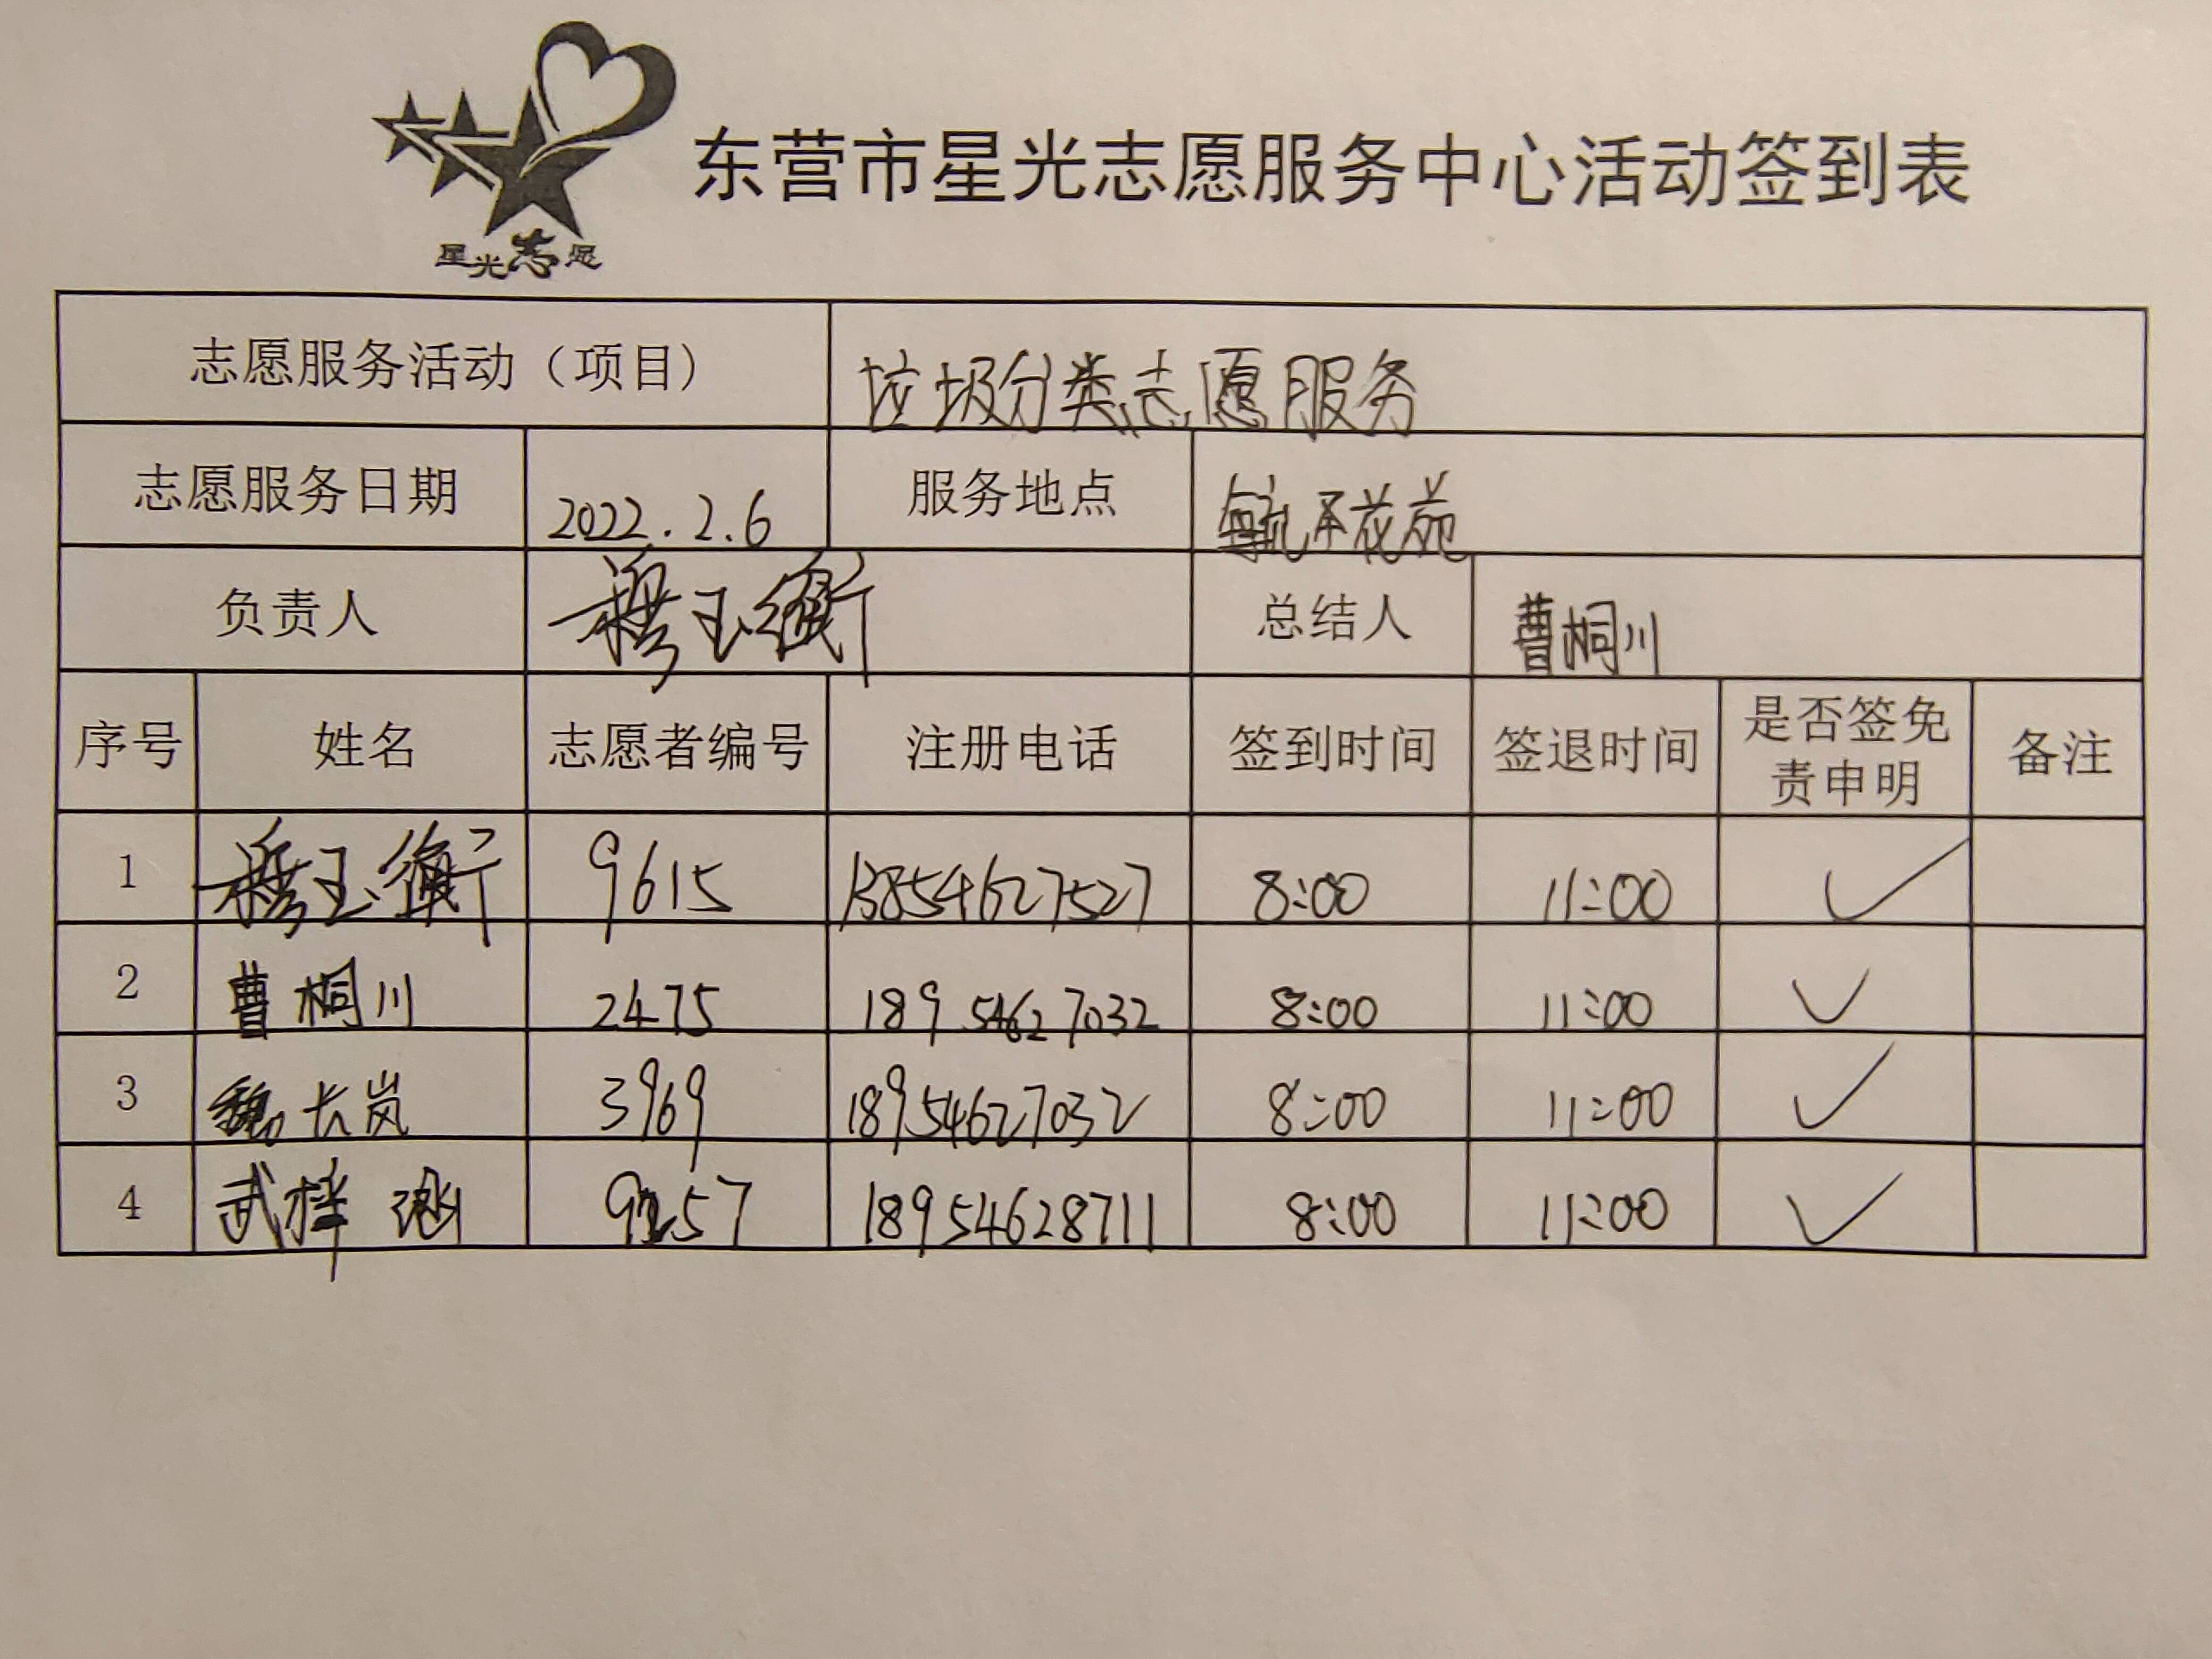 星光志愿
东营市星光志愿服务中心活动签到表
志愿服务活动（项目） 垃圾分类志愿服务
志愿服务日期 2022.2.6 服务地点 花苑
负责人 穆玉衡 总结人 曹桐川
序号 姓名 志愿者编号 注册电话 签到时间 签退时间 是否签免责申明 备注
1 穆玉衡 9615 13854627527 8:00 11:00 ✓
2 曹桐川 2475 18954627032 8:00 11:00 ✓
3 魏长岚 3969 18954627032 8:00 11:00 ✓
4 武梓涵 18954628711 8:00 11:00 ✓